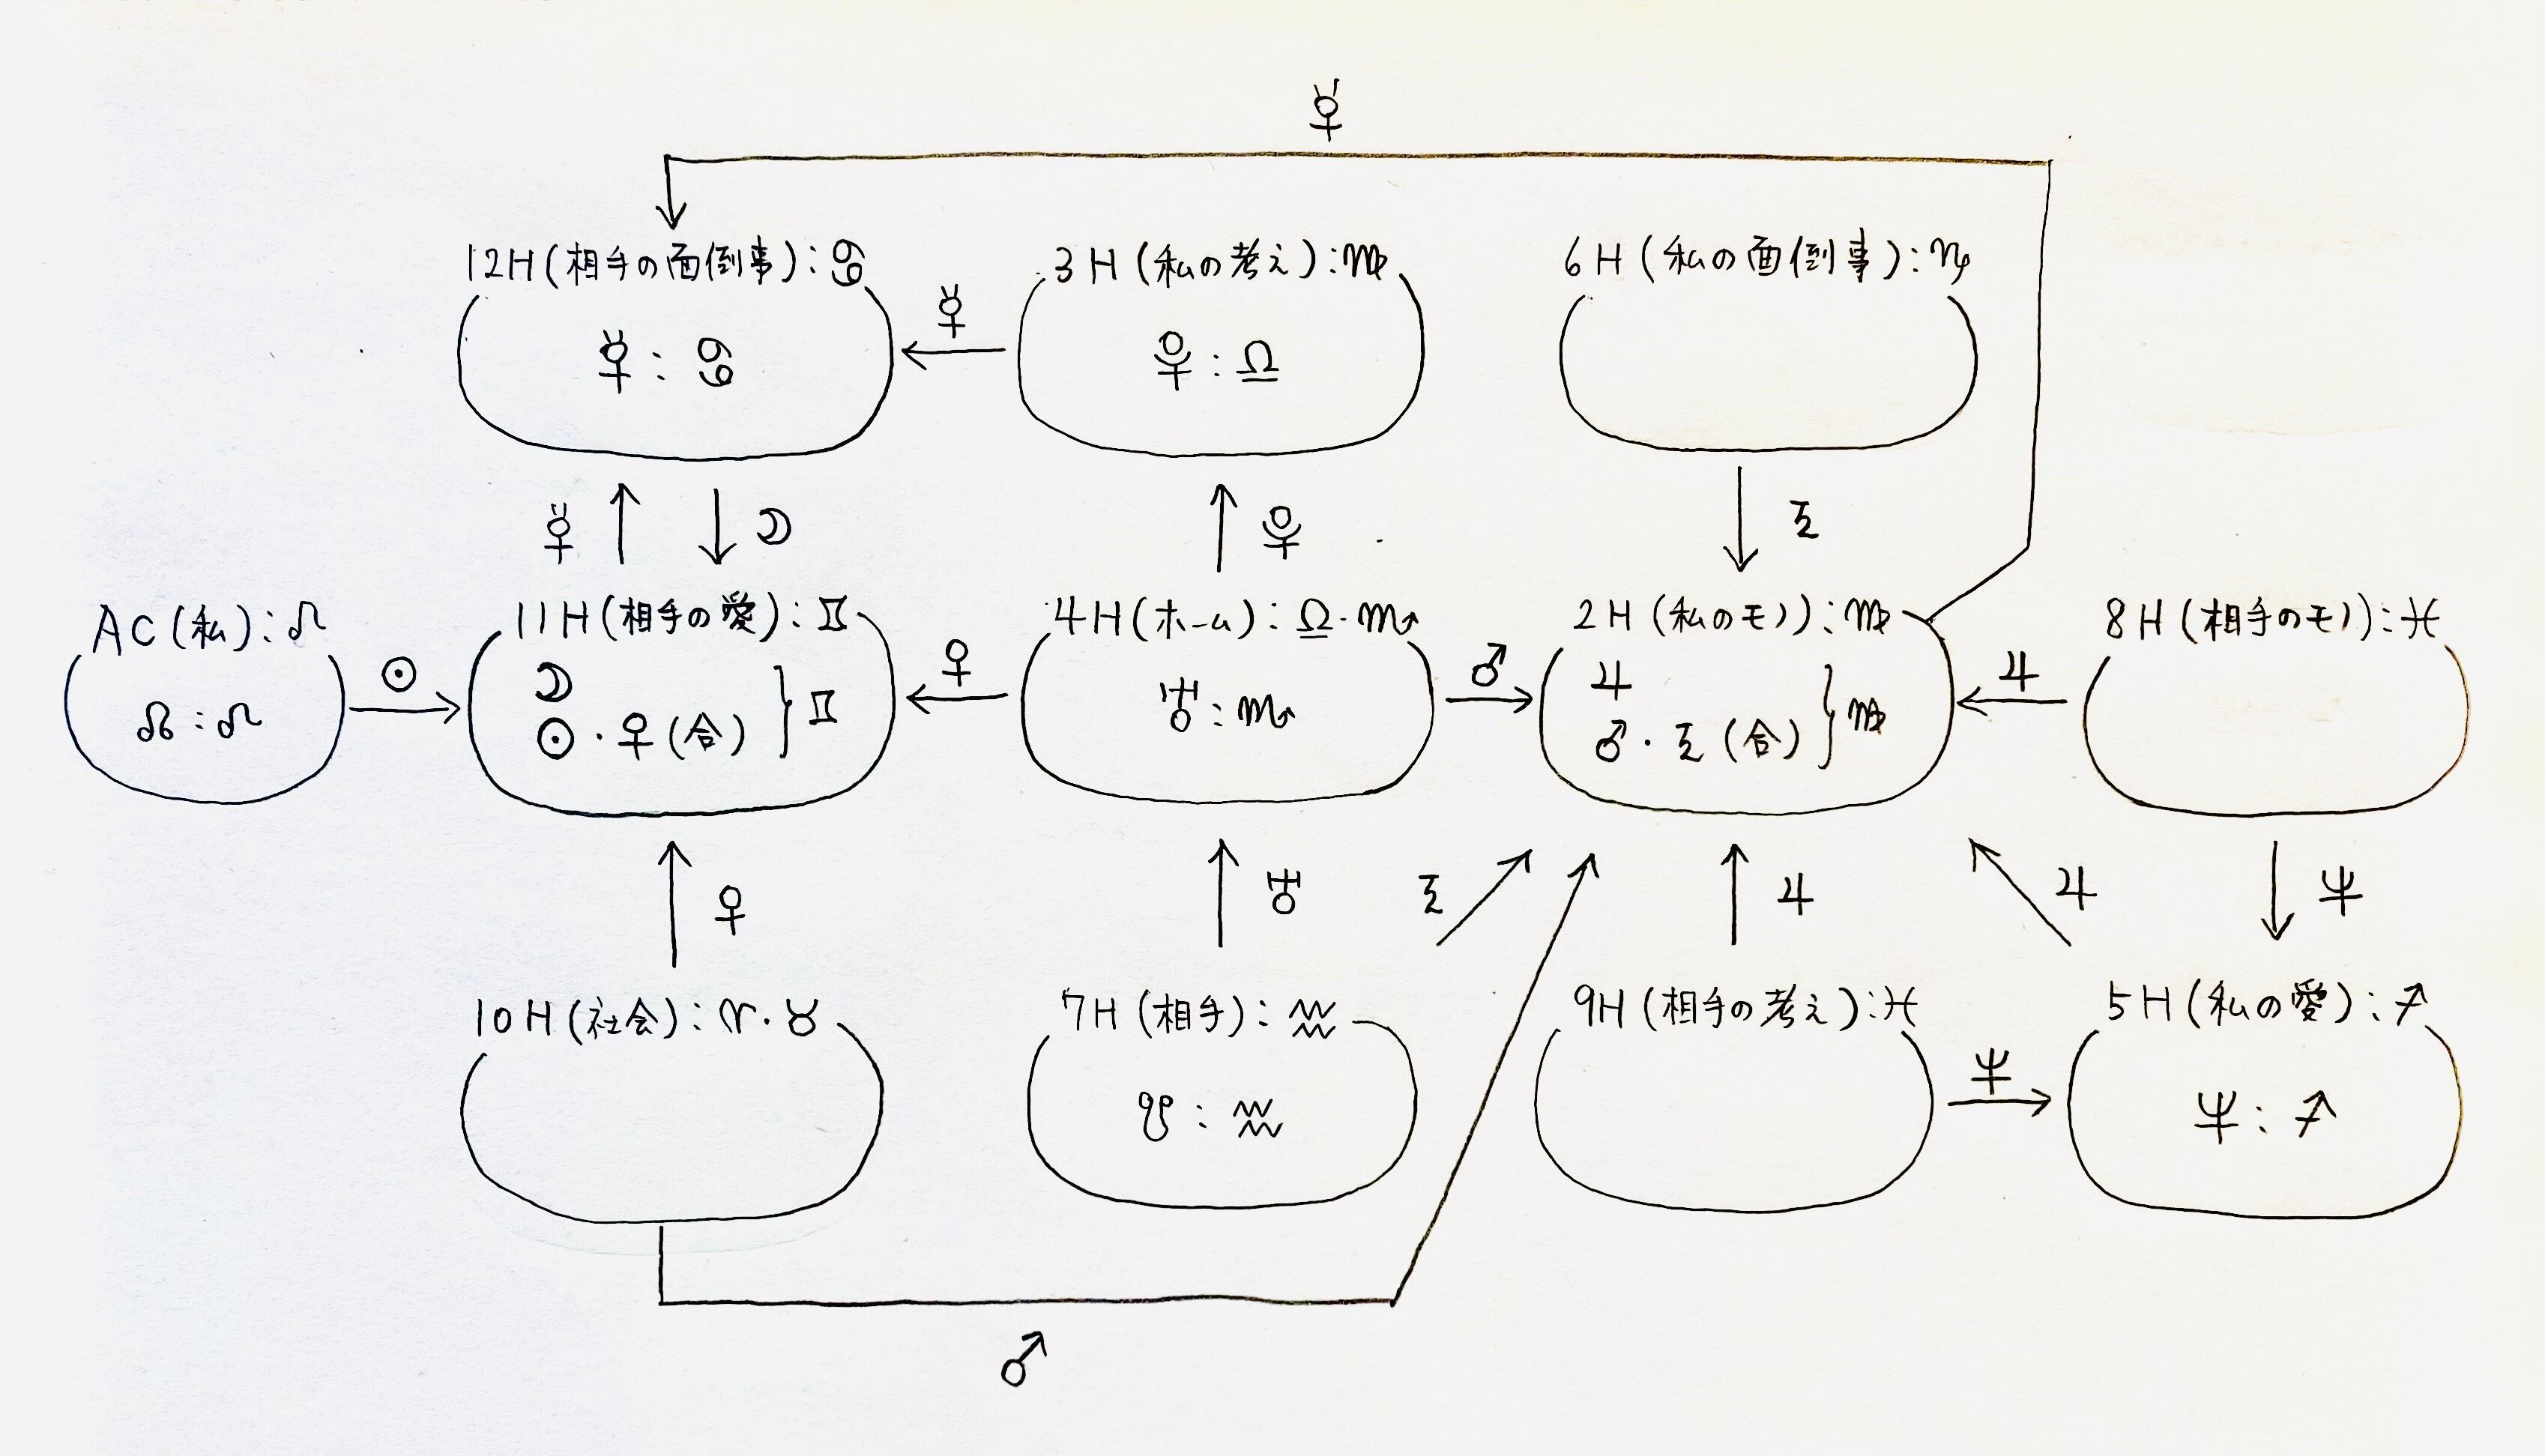 ☿
12H(相手の面倒事):♋
3H(私の考え):♍
6H(私の面倒事):♑
☿:♋
☿
♇:♎
☿
☽
♇
土
AC(私):♌
11H(相手の愛):♊
4H(ホーム):♎・♏
2H(私のモノ):♍
8H(相手のモノ):♓
☊:♌
☉
☽
☉・♀(合)
}♊
♀
♅:♏
♂
♃
♂・土(合)
}♍
♃
♀
♅
土
♃
♃
♆
10H(社会):♈・♉
7H(相手):♒
9H(相手の考え):♓
5H(私の愛):♐
☋:♒
♆
♆:♐
♂